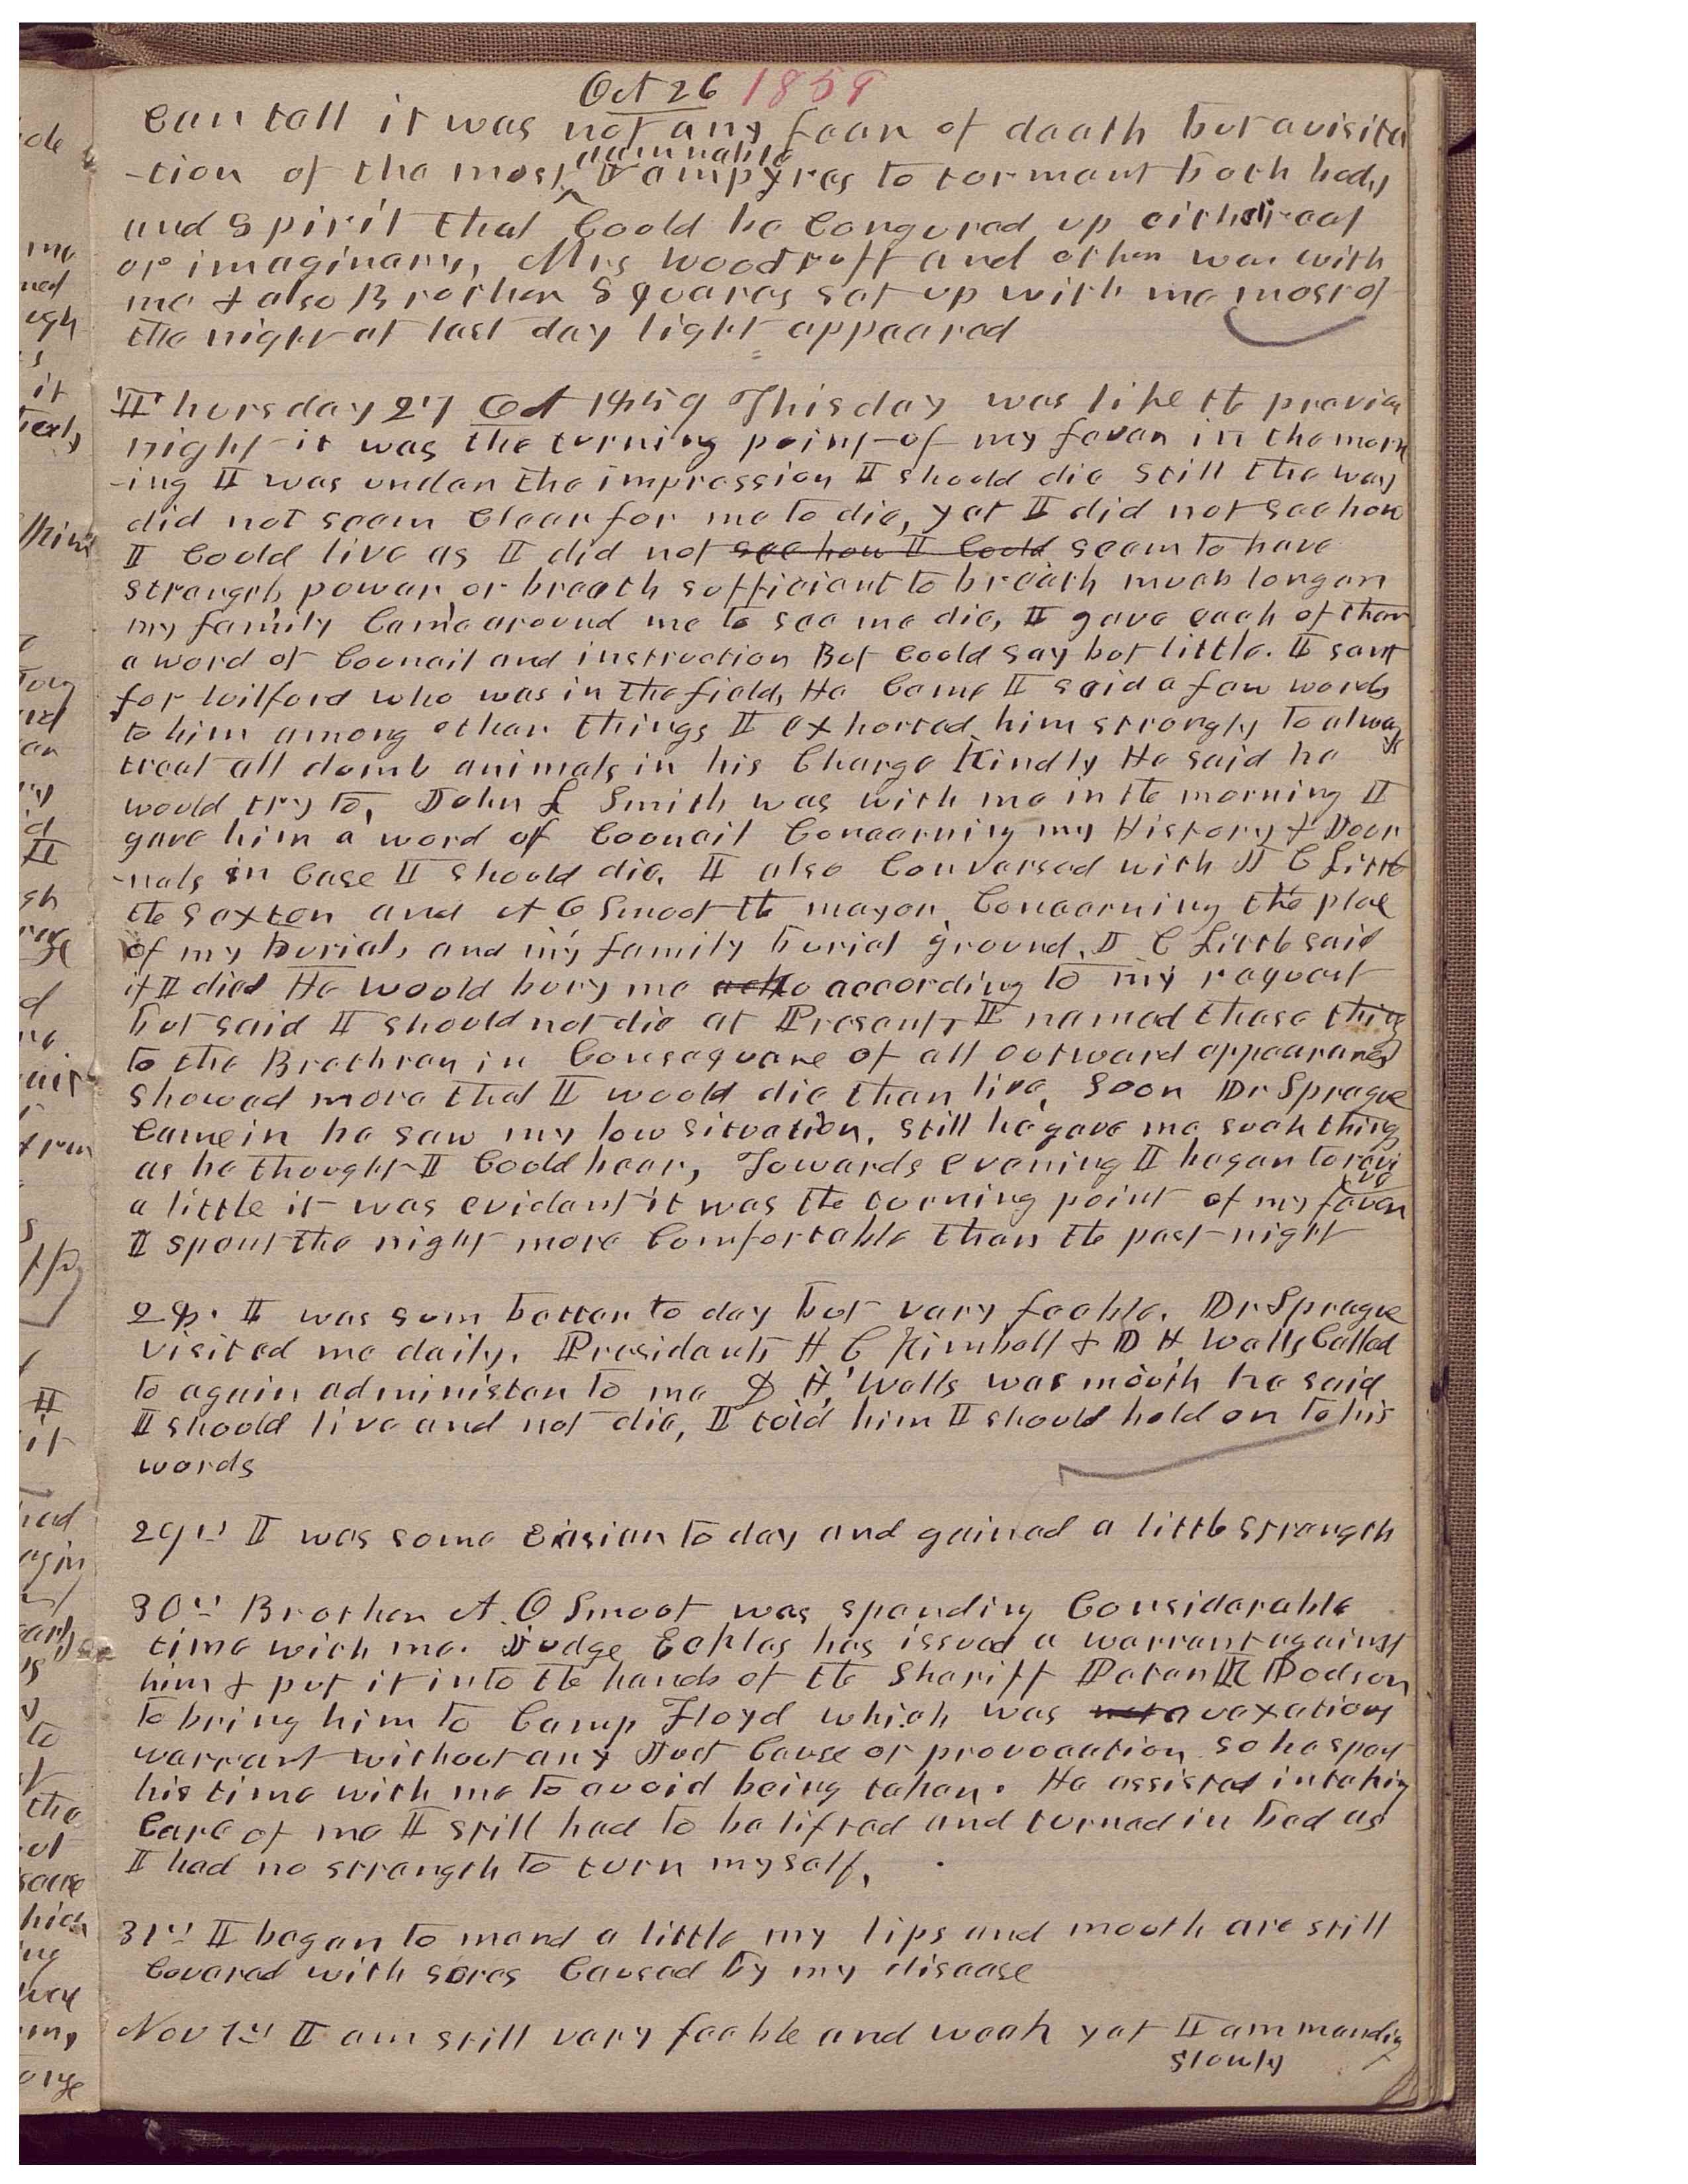 Oct 26 1859
can tell it was not any fear of death but a visita
-tion of the most damnable vampyres to torment both body
and Spirit that Could be Congured up either real
or imaginary, Mrs Woodruff and other was with
me & also Brother Squares sat up with me most of
the night at last day light appeared
Thursday 27 Oct 1859 This day was like the previous
night it was the turning point of my fever in the morn
-ing I was under the impression I should die still the way
did not seem Clear for me to die, yet I did not see how
I Could live as I did not see how I Could seem to have
strength power or breath sufficient to breath much longer
my family Came around me to see me die, I gave each of them
a word of Councill and instruction But Could say but little. I sent
for Wilford who was in the field, He Came I said a few words
to him among other things I exhorted him strongly to always
treat all dumb animals in his Charge Kindly He said he
would try to, John L Smith was with me in the morning I
gave him a word of Councill Concerning my History & Jour
-nals in Case I should die. I also Conversed with J C Little
the Sexton and A O Smoot the mayor Concerning the place
of my burial, and my family burial ground. J C Little said
if I died He would bury me according to my request
but said I should not die at Present, I named these things
to the Brethren in Consequence of all outward appearances
showed more that I would die than live. Soon Dr Sprague
Came in he saw my low situation, still he gave me such things
as he thought I Could bear, Towards evening I began to revive
a little it was evident it was the turning point of my fever
I spent the night more Comfortable than the past night
28. I was som better to day but very feeble. Dr Sprague
visited me daily. Presidents H C Kimball & D H Wells Called
to again administer to me D H Wells was mouth he said
I should live and not die, I told him I should hold on to his
words
29th I was some Easier to day and gained a little strength
30th Brother A. O Smoot was spending Considerable
time with me. Judge Eckles has issued a warrant against
him & put it into the hands of the Shariff Peter K Dodson
to bring him to Camp Floyd which was a vexatious
warrant without any Just Cause or provocation so he spent
his time with me to avoid being taken. He assisted in taking
Care of me I still had to be lifted and turned in bed as
I had no strength to turn myself,
31st I began to mend a little my lips and mouth are still
Covered with sores Caused by my disease
Nov 1st I am still very feeble and weak yet I am mending
slowly